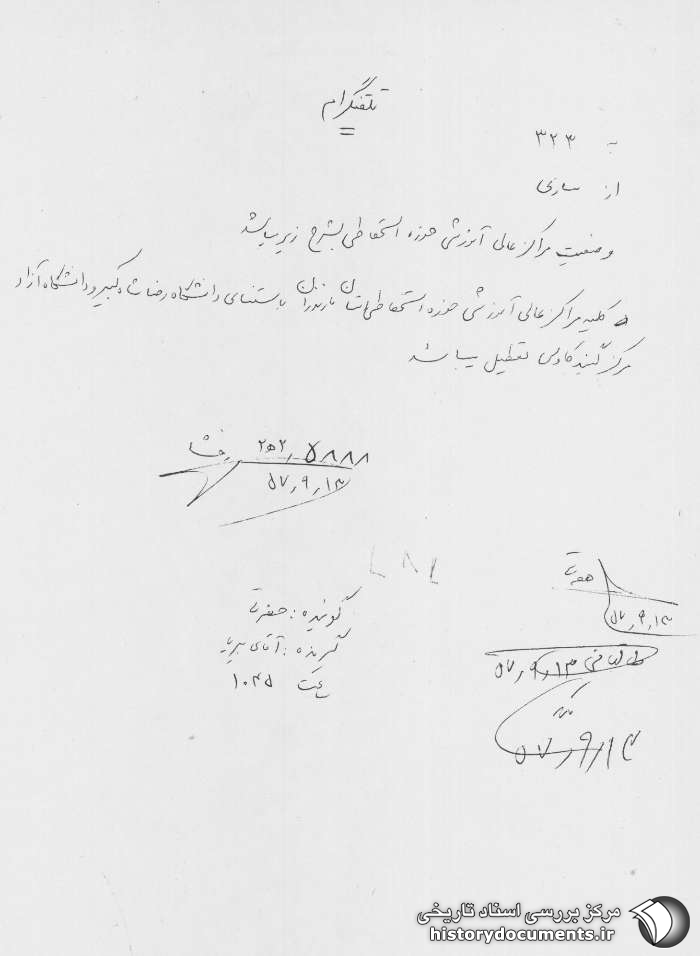 تلفنگرام
به ۳۲۳
از ساری
وضعیت مراکز عالی آموزشی حوزه استحفاظی بشرح زیر میباشد
کلیه مراکز عالی آموزشی حوزه استحفاظی استان مازندران باستثنای دانشگاه رضا شاه کبیر و دانشگاه آزاد
مرکز گنبد کاوس تعطیل میباشد
۲۵۲٫۵۸۸۸
۵۷٫۹٫۱۳
۵۷٫۹٫۱۳
گوینده : حضرتی
گیرنده : آقای
ساعت ۱۰۴۵
۵۷٫۹٫۱۳
۵۷٫۹٫۱۴
مرکز بررسی اسناد تاریخی
historydocuments.ir